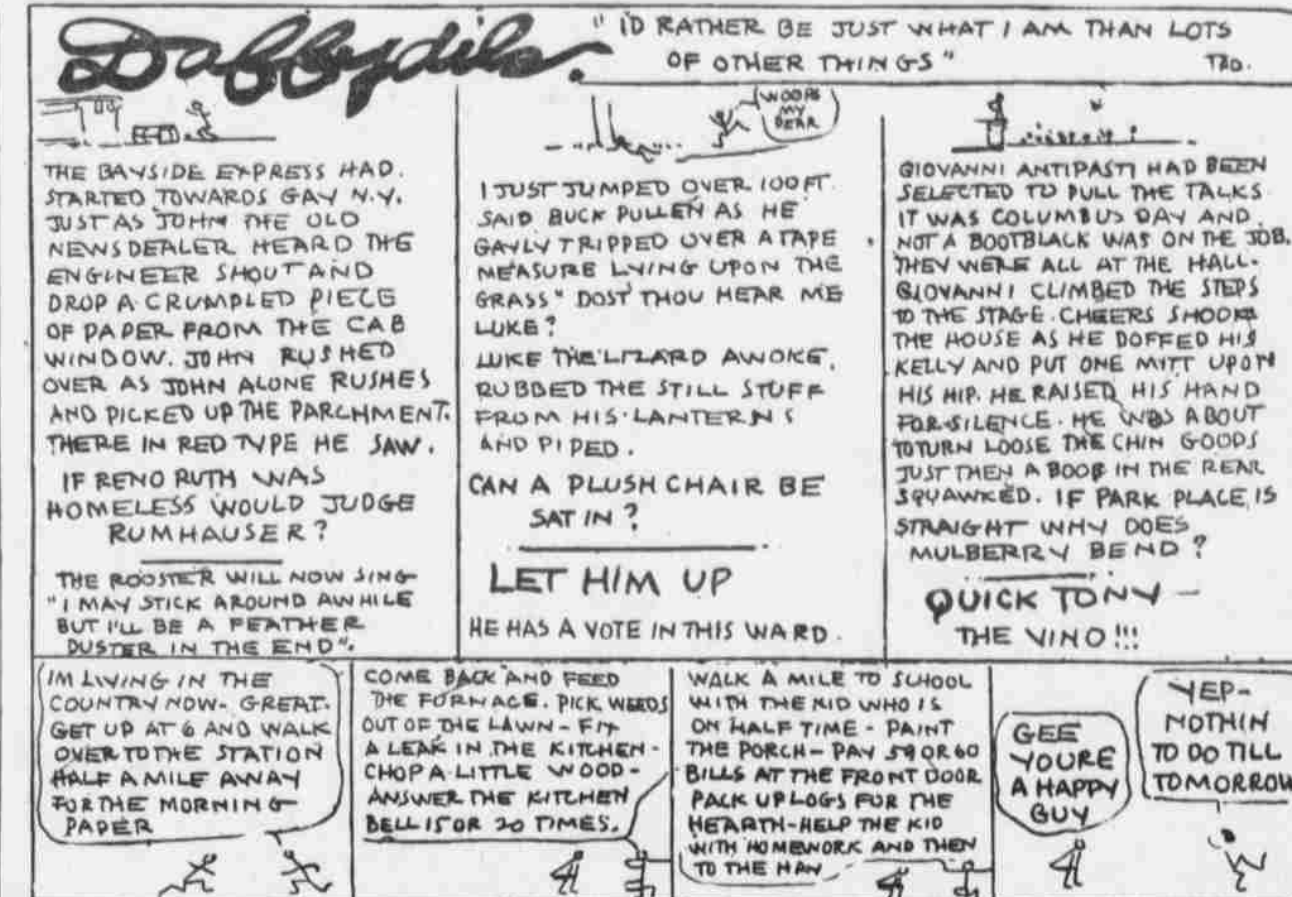 Daffydils.
"I'D RATHER BE JUST WHAT I AM THAN LOTS
OF OTHER THINGS"
TAD.
THE BAYSIDE EXPRESS HAD.
STARTED TOWARDS GAY N.Y.
JUST AS JOHN THE OLD
NEWSDEALER HEARD THE
ENGINEER SHOUT AND
DROP A CRUMPLED PIECE
OF PAPER FROM THE CAB
WINDOW. JOHN RUSHED
OVER AS JOHN ALONE RUSHES
AND PICKED UP THE PARCHMENT.
THERE IN RED TYPE HE SAW.
IF RENO RUTH WAS
HOMELESS WOULD JUDGE
RUMHAUSER?
THE ROOSTER WILL NOW SING
"I MAY STICK AROUND AWHILE
BUT I'LL BE A FEATHER
DUSTER IN THE END".
WOOPS
MY
DEAR
I JUST JUMPED OVER 100 FT.
SAID BUCK PULLEN AS HE
GAYLY TRIPPED OVER A TAPE
MEASURE LYING UPON THE
GRASS" DOST THOU HEAR ME
LUKE?
LUKE THE LIZARD AWOKE.
RUBBED THE STILL STUFF
FROM HIS LANTERNS
AND PIPED.
CAN A PLUSH CHAIR BE
SAT IN?
LET HIM UP
HE HAS A VOTE IN THIS WARD.
GIOVANNI ANTIPASTI HAD BEEN
SELECTED TO PULL THE TALKS
IT WAS COLUMBUS DAY AND
NOT A BOOTBLACK WAS ON THE JOB.
THEY WERE ALL AT THE HALL.
GIOVANNI CLIMBED THE STEPS
TO THE STAGE. CHEERS SHOOK
THE HOUSE AS HE DOFFED HIS
KELLY AND PUT ONE MITT UPON
HIS HIP. HE RAISED HIS HAND
FOR SILENCE. HE WAS ABOUT
TO TURN LOOSE THE CHIN GOODS
JUST THEN A BOOB IN THE REAR
SQUAWKED. IF PARK PLACE IS
STRAIGHT WHY DOES
MULBERRY BEND?
QUICK TONY -
THE VINO!!!
IM LIVING IN THE
COUNTRY NOW- GREAT.
GET UP AT 6 AND WALK
OVER TO THE STATION
HALF A MILE AWAY
FOR THE MORNING
PAPER
COME BACK AND FEED
THE FORNACE. PICK WEEDS
OUT OF THE LAWN - FIX
A LEAK IN THE KITCHEN -
CHOP A LITTLE WOOD -
ANSWER THE KITCHEN
BELL 15 OR 20 TIMES.
WALK A MILE TO SCHOOL
WITH THE KID WHO IS
ON HALF TIME - PAINT
THE PORCH - PAY 59 OR 60
BILLS AT THE FRONT DOOR
PACK UP LOGS FOR THE
HEARTH-HELP THE KID
WITH HOMEWORK AND THEN
TO THE HAY
GEE
YOURE
A HAPPY
GUY
YEP-
NOTHIN
TO DO TILL
TOMORROW